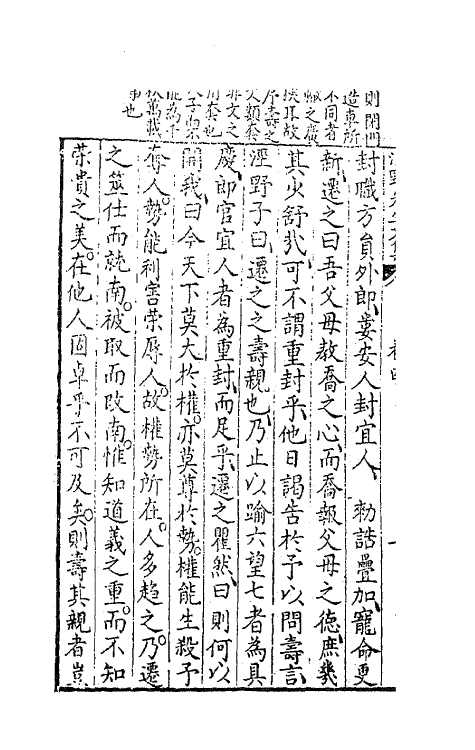 則閉門
造車所
不同者
之廣
序壽之
文類
非文之
也
能為
也
封職方員外郎婁安人封宜人　勑誥疊加寵命更
新遷之曰吾父母教喬之心而喬報父母之德庶幾
其少舒矣可不謂重封乎他日謁告於予以問壽言
涇野子曰遷之之壽親也乃止以踰六望七者為具
慶郎官宜人者為重封而足乎遷之瞿然曰則何以
開我曰今天下莫大於權亦莫尊於勢權能生殺予
奪人勢能利害榮辱人故權勢所在人多趨之乃遷
之筮仕而就南被取而改南惟知道義之重而不知
榮貴之美在他人固卓乎不可及矣則壽其親者豈